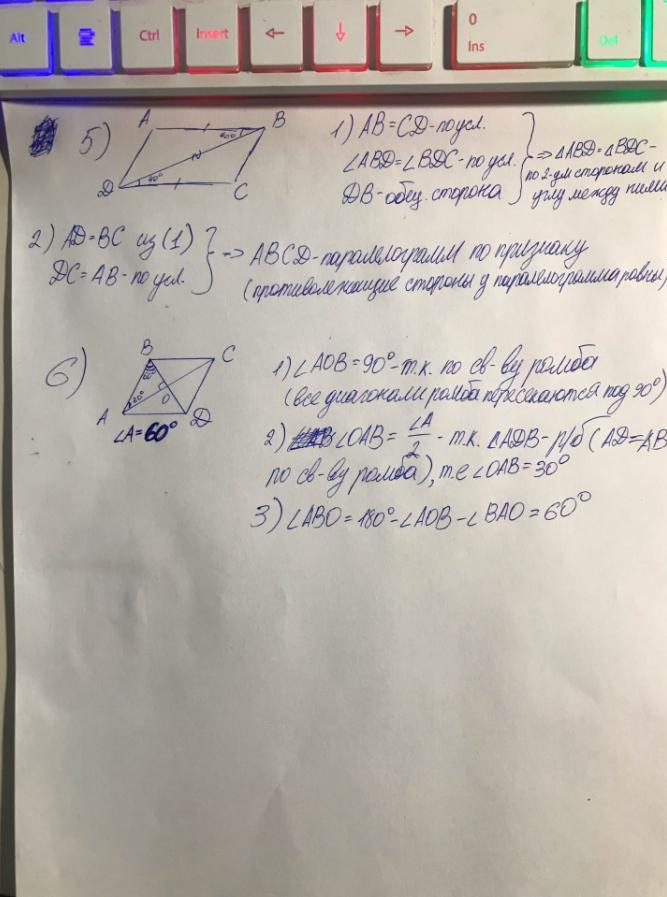 Alt
Ctrl
Insert
←
↓
→
0
Ins
Del
5)
A
B
D
C
40°
40°
1) AB = CD - по усл.
∠ABD = ∠BDC - по усл.
DB - общ. сторона
=> △ABD = △BDC -
по 2-ум сторонам и
углу между ними
2) AD = BC из (1)
DC = AB - по усл.
=> ABCD - паралелограмм по признаку
(противолежащие стороны у паралелограмма равны)
6)
B
C
A
O
D
∠A = 60°
1) ∠AOB = 90° - т.к. по св-ву ромба
(все диагонали ромба пересекаются под 90°)
2) ∠OAB = ∠A/2 - т.к. △ADB - р/б (AD = AB
по св-ву ромба), т.е ∠OAB = 30°
3) ∠ABO = 180° - ∠AOB - ∠BAO = 60°